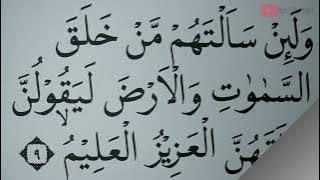 وَلَىِٕنْ سَاَلْتَهُمْ مَّنْ خَلَقَ
السَّمٰوٰتِ وَالْاَرْضَ لَيَقُوْلُنَّ
خَلَقَهُنَّ الْعَزِيْزُ الْعَلِيْمُۙ ٩